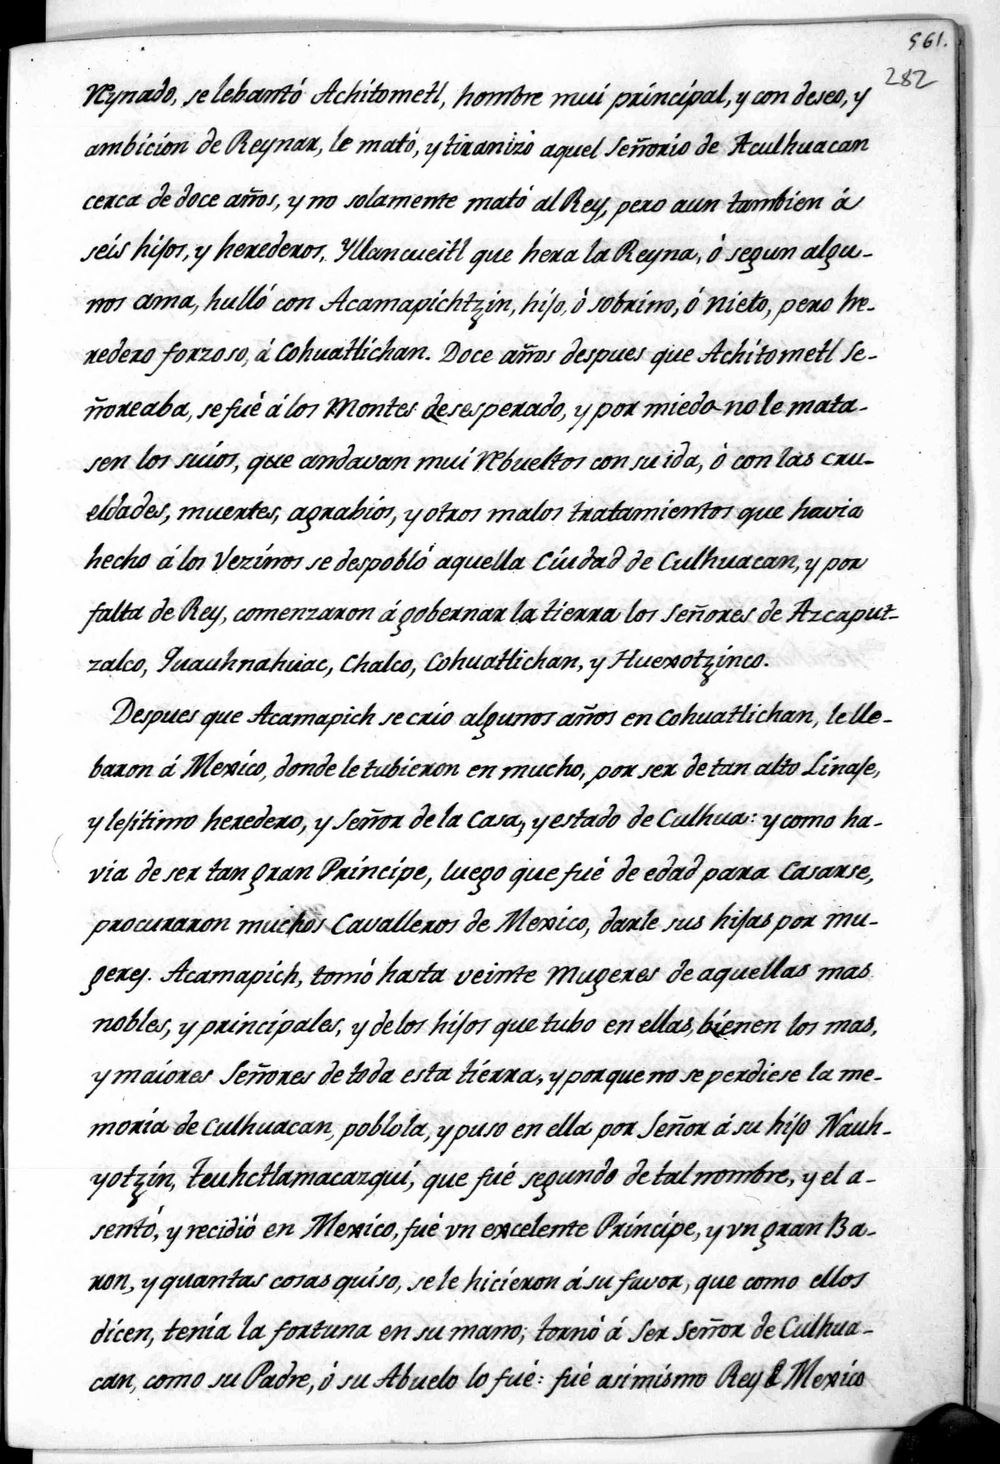 561.
282
Reynado, se lebantó Achitometl, hombre mui principal, y con deseo, y
ambicion de Reynar, le mató, y tiranizó aquel Señorio de Aculhuacan
cerca de doce años, y no solamente mató al Rey, pero aun tambien á
seis hijos, y herederos. Yllancueitl que hera la Reyna, ò segun algu-
nos ama, hulló con Acamapichtzin, hijo, ò sobrino, ó Nieto, pero he-
redero forzoso, á Cohuatlichan. Doce años despues que Achitometl Se-
ñoreaba, se fué á los Montes desesperado, y por miedo no le mata-
sen los suios, que andavan mui Rebueltos con su ida, ò con las cru-
eldades, muertes, agrabios, y otros malos tratamientos que havia
hecho á los Vezinos se despobló aquella Ciudad de Culhuacan, y por
falta de Rey, comenzaron á gobernar la tierra los Señores de Azcaput-
zalco, Quauhnahuac, Chalco, Cohuatlichan, y Huexotzinco.
Despues que Acamapich se crio algunos años en Cohuatlichan, le lle-
baron á Mexico, donde le tubieron en mucho, por ser de tan alto Linaje,
y lejitimo heredero, y Señor de la Casa, y estado de Culhua: y como ha-
via de ser tan gran Principe, luego que fué de edad para Casarse,
procuraron muchos Cavalleros de Mexico, darle sus hijas por mu-
geres. Acamapich, tomó hasta veinte Mugeres de aquellas mas
nobles, y principales, y de los hijos que tubo en ellas, bienen los mas,
y maiores Señores de toda esta tierra, y porque no se perdiese la me-
moria de Culhuacan, poblola, y puso en ella por Señor á su hijo Nauh-
yotzin, teuhctlamacazqui, que fué segundo de tal nombre, y el a-
sentó, y recidió en Mexico, fué vn excelente Principe, y vn gran Ba-
ron, y quantas cosas quiso, se le hicieron á su favor, que como ellos
dicen, tenia la fortuna en su mano; tornó á Ser Señor de Culhua-
can, como su Padre, ó su Abuelo lo fué: fué asimismo Rey d Mexico